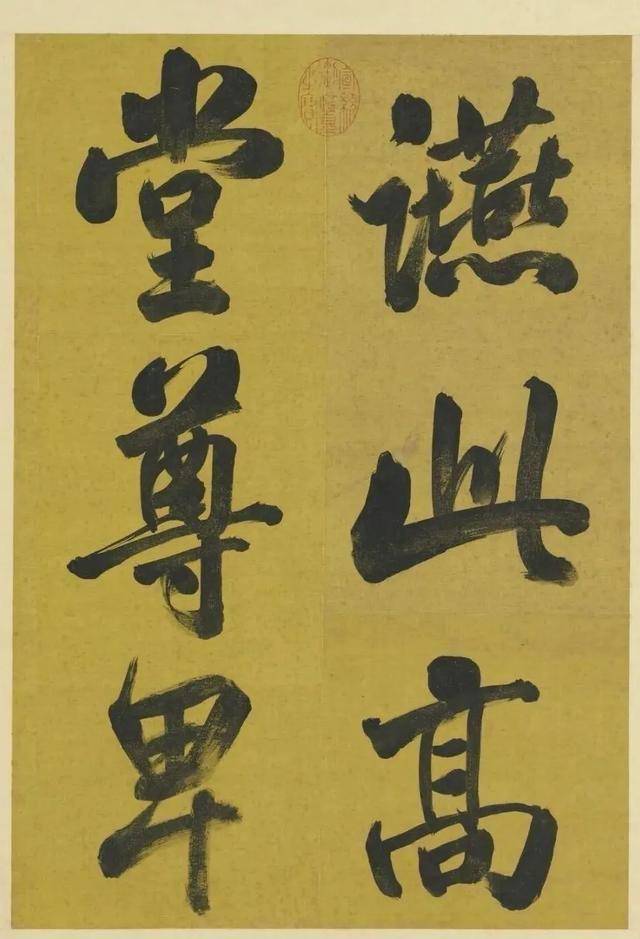 讌此高
堂尊卑